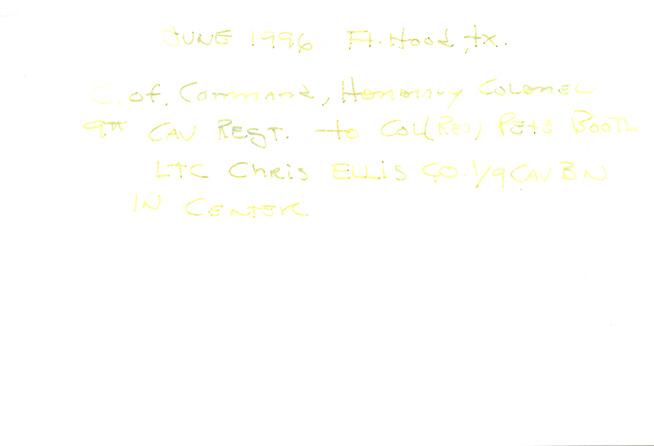 JUNE 1996 Ft. Hood, tx.
C. of. Command, Honorary Colonel
9TH CAV REGT. to COL(Ret) PETE BOOTH
LTC Chris ELLIS CO. 1/9 CAV BN
IN CENTER